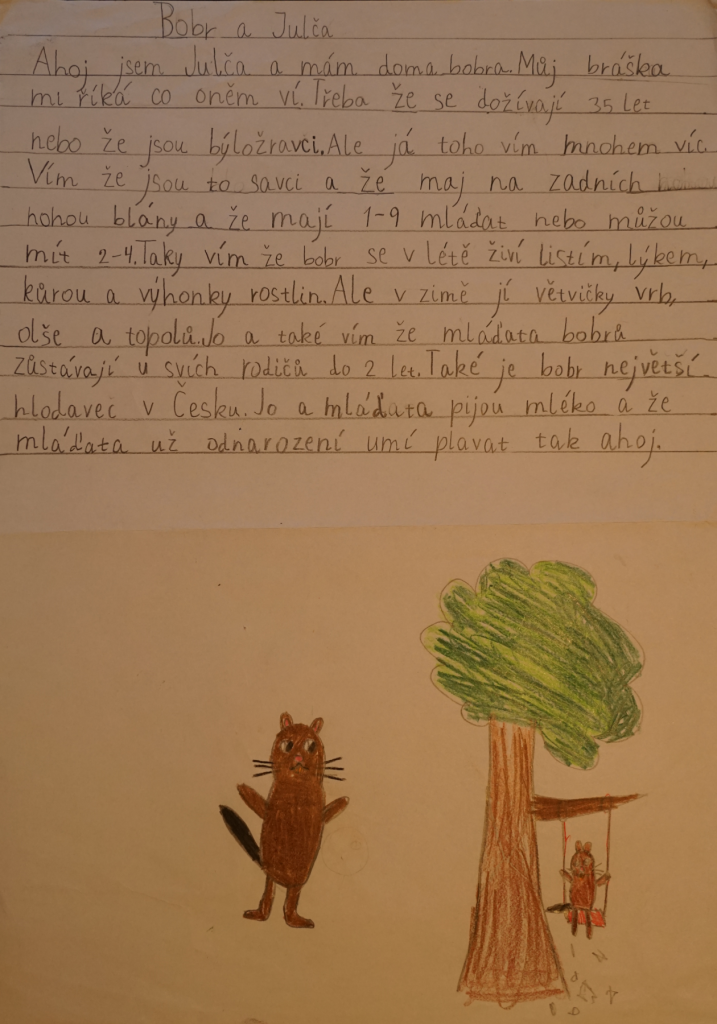 Bobr a Julča
Ahoj jsem Julča a mám doma bobra. Můj bráška
mi říká co oněm ví. Třeba že se dožívají 35 let
nebo že jsou býložravci. Ale já toho vím mnohem víc.
Vím že jsou to savci a že maj na zadních
nohou blány a že mají 1-9 mláďat nebo můžou
mít 2-4. Taky vím že bobr se v létě živí listím, lýkem,
kůrou a výhonky rostlin. Ale v zimě jí větvičky vrb,
olše a topolů. Jo a také vím že mláďata bobrů
zůstávají u svích rodičů do 2 let. Také je bobr největší
hlodavec v Česku. Jo a mláďata pijou mléko a že
mláďata už odnarození umí plavat tak ahoj.